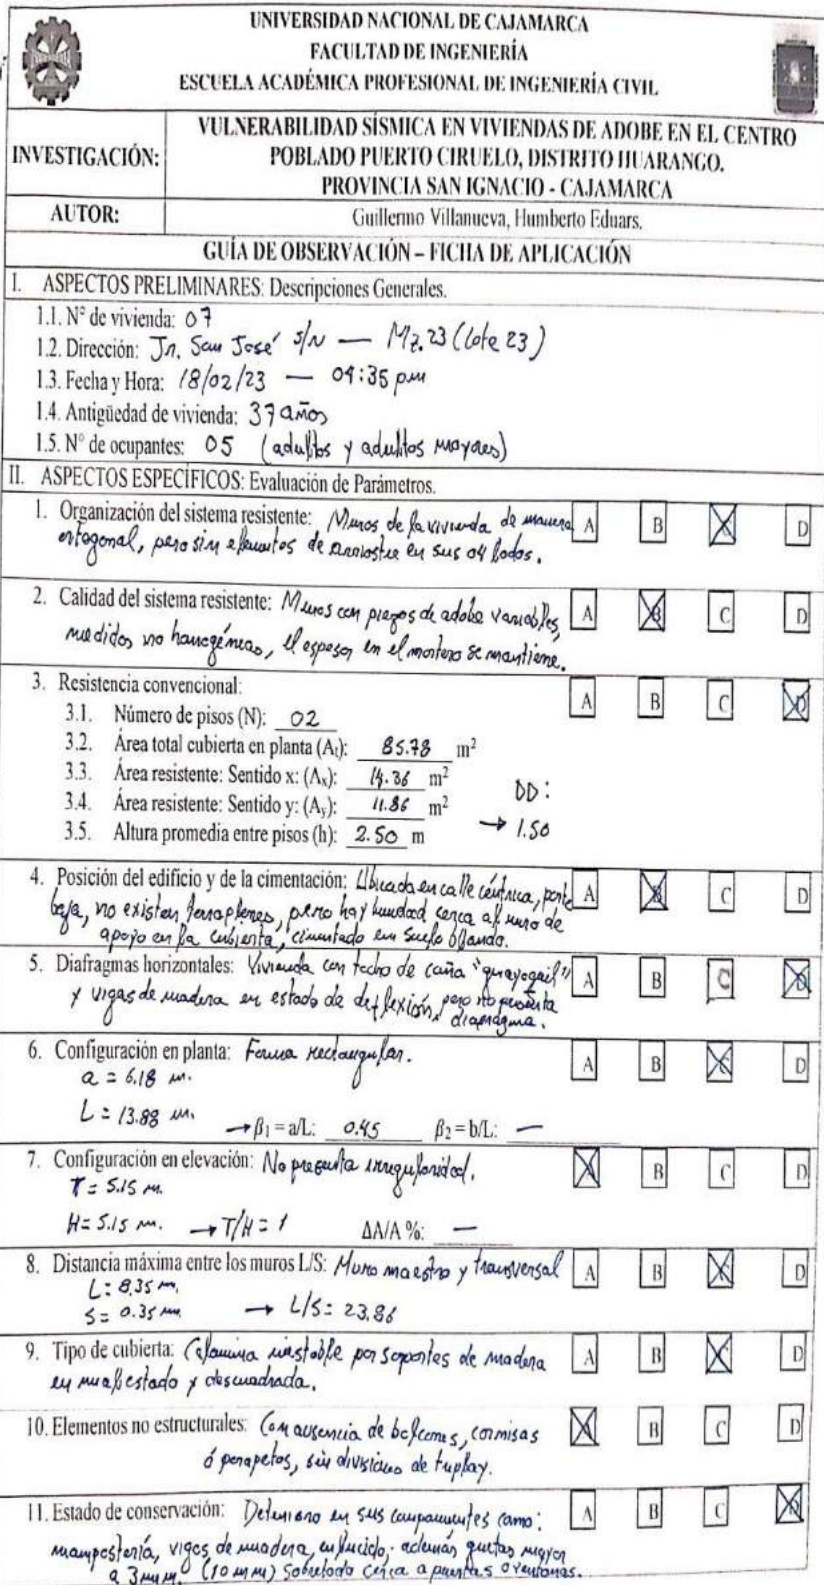 UNIVERSIDAD NACIONAL DE CAJAMARCA
FACULTAD DE INGENIERÍA
ESCUELA ACADÉMICA PROFESIONAL DE INGENIERÍA CIVIL
INVESTIGACIÓN:
VULNERABILIDAD SÍSMICA EN VIVIENDAS DE ADOBE EN EL CENTRO
POBLADO PUERTO CIRUELO, DISTRITO HUARANGO.
PROVINCIA SAN IGNACIO - CAJAMARCA
AUTOR: Guillermo Villanueva, Humberto Eduars.
GUÍA DE OBSERVACIÓN – FICHA DE APLICACIÓN
I. ASPECTOS PRELIMINARES: Descripciones Generales.
1.1. N° de vivienda: 07
1.2. Dirección: Jr. San José s/N — Mz. 23 (lote 23)
1.3. Fecha y Hora: 18/02/23 — 04:35 pm
1.4. Antigüedad de vivienda: 37 años
1.5. N° de ocupantes: 05 (adultos y adultos mayores)
II. ASPECTOS ESPECÍFICOS: Evaluación de Parámetros.
1. Organización del sistema resistente: Muros de la vivienda de manera A B C D
ortogonal, pero sin elementos de arriostre en sus 04 lados.
2. Calidad del sistema resistente: Muros con piezas de adobe variables, A B C D
medidas no homogéneas, el espesor en el mortero se mantiene.
3. Resistencia convencional: A B C D
3.1. Número de pisos (N): 02
3.2. Área total cubierta en planta (At): 85.78 m²
3.3. Área resistente: Sentido x: (Ax): 14.36 m²
DD:
3.4. Área resistente: Sentido y: (Ay): 11.86 m²
3.5. Altura promedia entre pisos (h): 2.50 m → 1.50
4. Posición del edificio y de la cimentación: Ubicada en calle céntrica, parte A B C D
baja, no existen terraplenes, pero hay humedad cerca al muro de
apoyo en la cubierta, cimentado en suelo blando.
5. Diafragmas horizontales: Vivienda con techo de caña "guayaquil" A B C D
y vigas de madera en estado de deflexión, pero no presenta
diafragma.
6. Configuración en planta: Forma rectangular. A B C D
a = 6.18 m.
L = 13.88 m. → β1 = a/L: 0.45 β2 = b/L: —
7. Configuración en elevación: No presenta irregularidad. A B C D
T = 5.15 m.
H = 5.15 m. → T/H = 1 ΔA/A %: —
8. Distancia máxima entre los muros L/S: Muro maestro y transversal A B C D
L: 8.35 m.
S = 0.35 m. → L/S = 23.86
9. Tipo de cubierta: Calamina inestable por soportes de madera A B C D
en mal estado y descuadrada.
10. Elementos no estructurales: Con ausencia de balcones, cornisas A B C D
ó parapetos, sin divisiones de triplay.
11. Estado de conservación: Deterioro en sus componentes como: A B C D
mampostería, vigas de madera, enlucido, además grietas mayor
a 3mm. (10 mm) sobretodo cerca a puertas o ventanas.